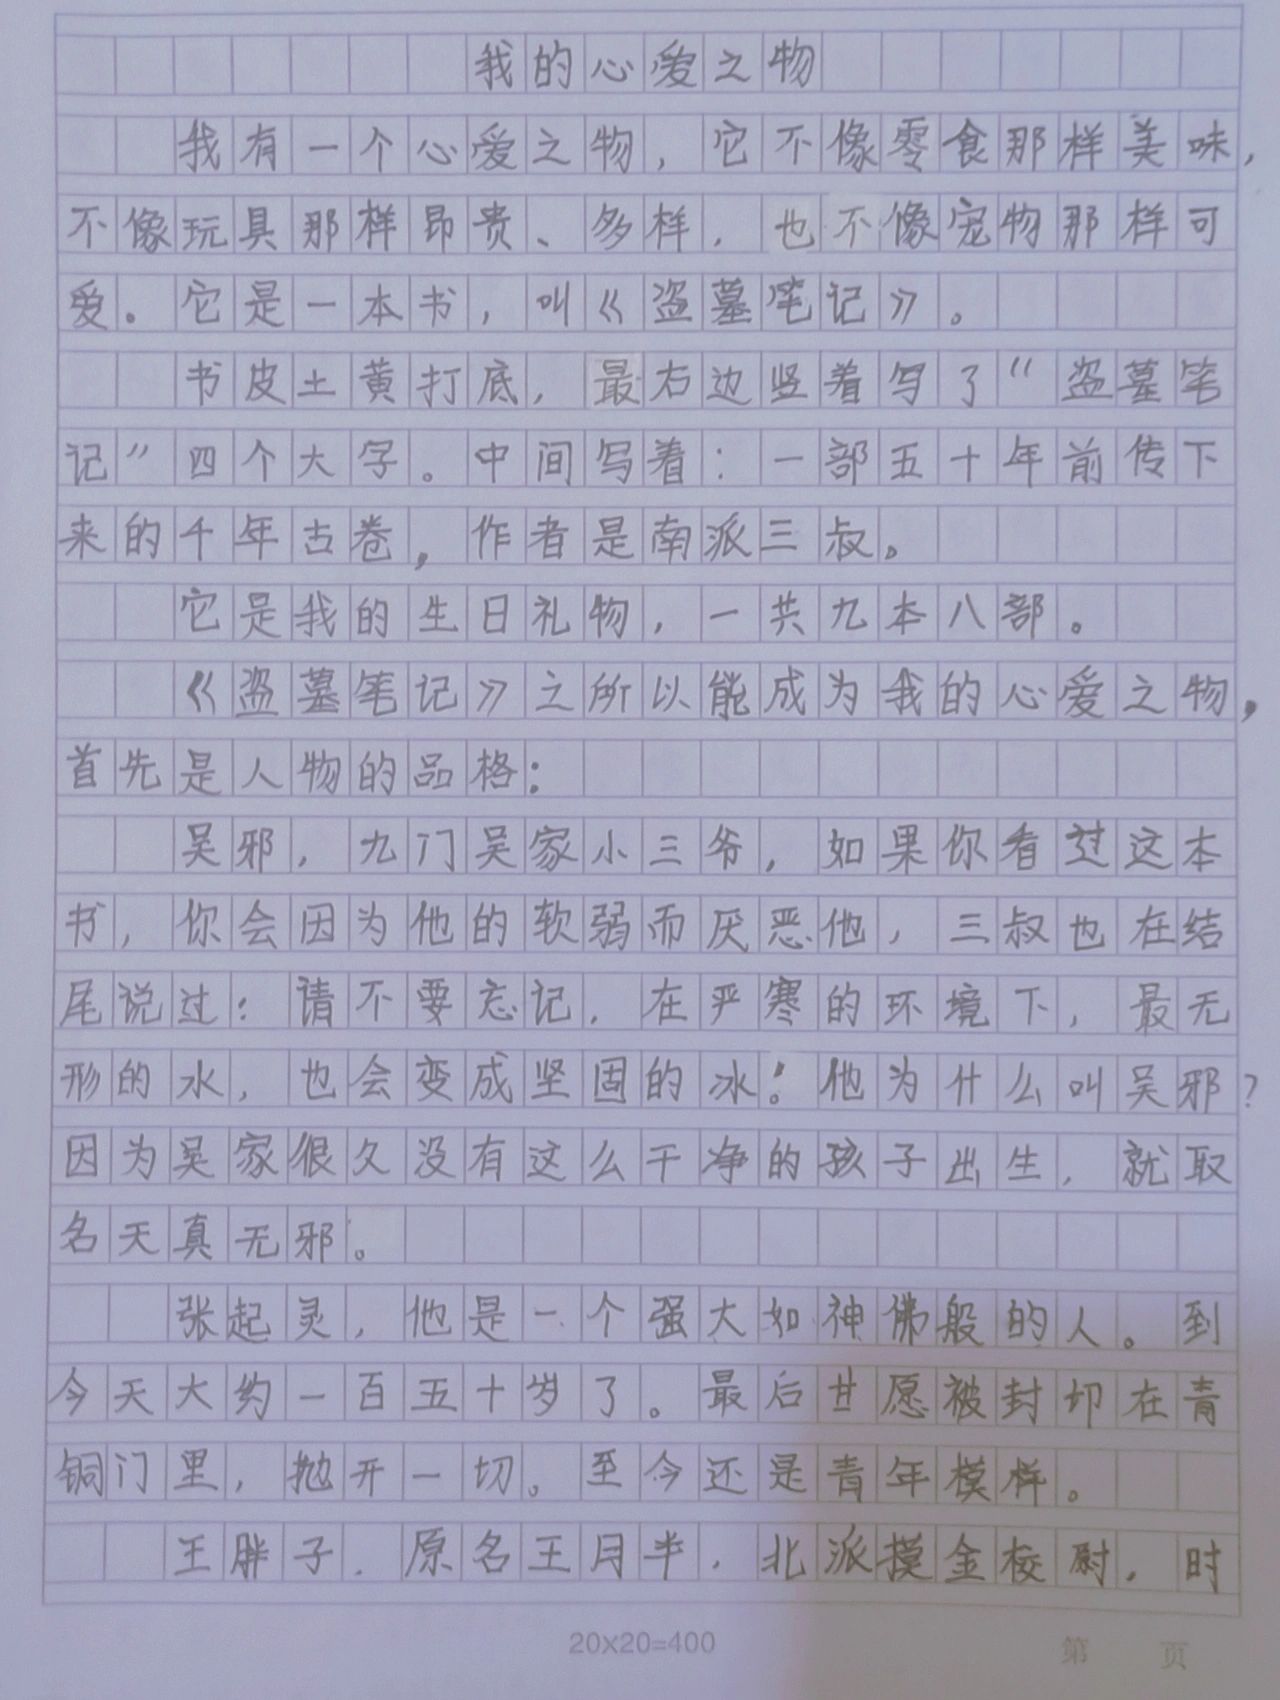 我的心爱之物
我有一个心爱之物，它不像零食那样美味，
不像玩具那样昂贵、多样，也不像宠物那样可
爱。它是一本书，叫《盗墓笔记》。
书皮土黄打底，最右边竖着写了“盗墓笔
记”四个大字。中间写着：一部五十年前传下
来的千年古卷，作者是南派三叔。
它是我的生日礼物，一共九本八部。
《盗墓笔记》之所以能成为我的心爱之物，
首先是人物的品格：
吴邪，九门吴家小三爷，如果你看过这本
书，你会因为他的软弱而厌恶他，三叔也在结
尾说过：请不要忘记，在严寒的环境下，最无
形的水，也会变成坚固的冰！他为什么叫吴邪？
因为吴家很久没有这么干净的孩子出生，就取
名天真无邪。
张起灵，他是一个强大如神佛般的人。到
今天大约一百五十岁了。最后甘愿被封印在青
铜门里，抛开一切。至今还是青年模样。
王胖子，原名王月半，北派摸金校尉，时
20×20=400
第 页